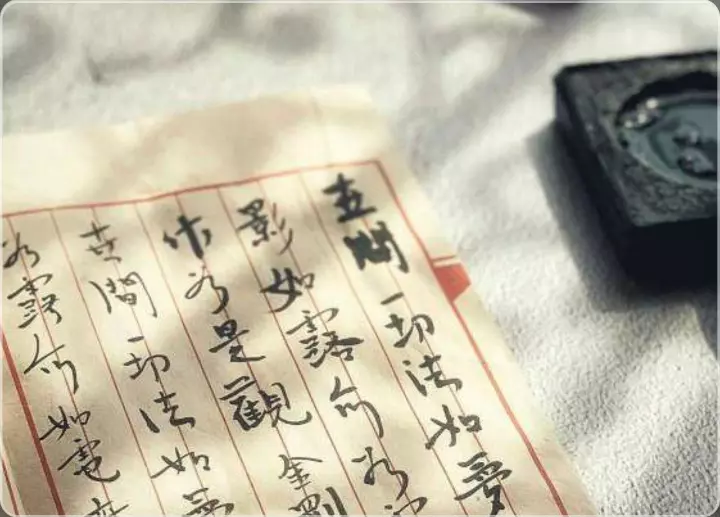 世間一切法如夢
影如露亦如
作如是觀金剛
世間一切法如夢
如露亦如電應